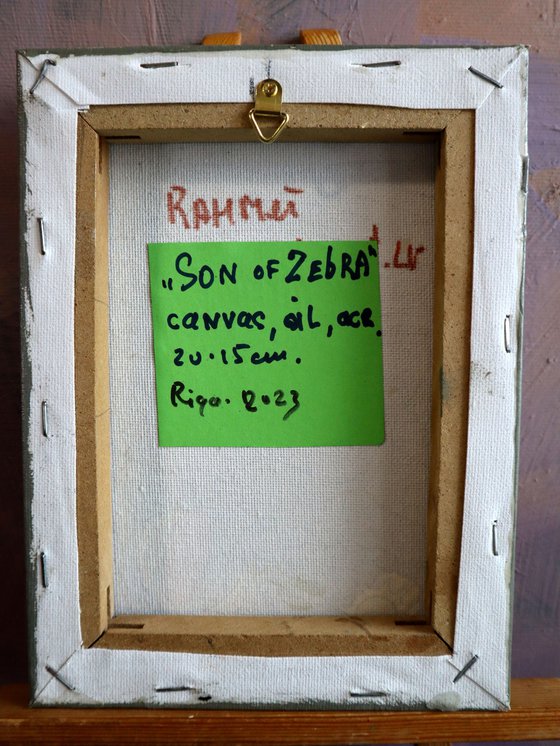 RAHMET
.LV
„SON OF ZEbRA"
canvas, oil, acr.
20·15cm.
Riga. 2023